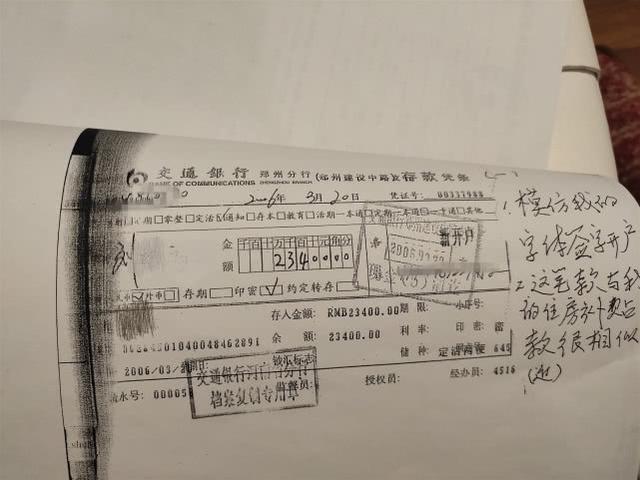 交通銀行 郑州分行(郑州建设中路支 存款凭条
BANK OF COMMUNICATIONS ZHENGZHOU BRANCH
2006年 3月20日 凭证号: 00337988
期 零整 定活 通知 存本 教育 活期一本通 定期一本通 一卡通 其他
金额 千百十万千百十元角分
2340000
新开户
2006.03.20
外币 存期 印密 约定转存
存入金额: RMB23400.00 期 限: 小序号:
余 额: 23400.00 利 率: 印 密: 留
2006/03/ 被冻标志 储 种: 定活两便 645
交通银行河南省分行
档案复制专用章
流水号: 00005 授权员: 经办员: 4516
1.模仿我的
字体签字开户
2.这笔款与我
的住房补贴
款很相似